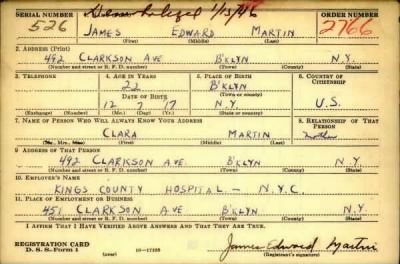 SERIAL NUMBER 1/15/46 ORDER NUMBER
526 JAMES EDWARD MARTIN 2766
(First) (Middle) (Last)
2. ADDRESS (Print)
492 CLARKSON AVE B'KLYN N.Y.
(Number and street or R. F. D. number) (Town) (County) (State)
3. TELEPHONE 4. AGE IN YEARS 5. PLACE OF BIRTH 6. COUNTRY OF CITIZENSHIP
22 B'KLYN
DATE OF BIRTH (Town or county)
12 7 17 N.Y. U.S.
(Exchange) (Number) (Mo.) (Day) (Yr.) (State or country)
7. NAME OF PERSON WHO WILL ALWAYS KNOW YOUR ADDRESS 8. RELATIONSHIP OF THAT PERSON
CLARA MARTIN Mother
(Mr., Mrs., Miss) (First) (Middle) (Last)
9. ADDRESS OF THAT PERSON
492 CLARKSON AVE. B'KLYN N.Y.
(Number and street or R. F. D. number) (Town) (County) (State)
10. EMPLOYER'S NAME
KINGS COUNTY HOSPITAL - N.Y.C.
11. PLACE OF EMPLOYMENT OR BUSINESS
451 CLARKSON AVE B'KLYN N.Y.
(Number and street or R. F. D. number) (Town) (County) (State)
I AFFIRM THAT I HAVE VERIFIED ABOVE ANSWERS AND THAT THEY ARE TRUE.
REGISTRATION CARD
D. S. S. Form 1 16-17105 James Edward Martin
(Registrant's signature)